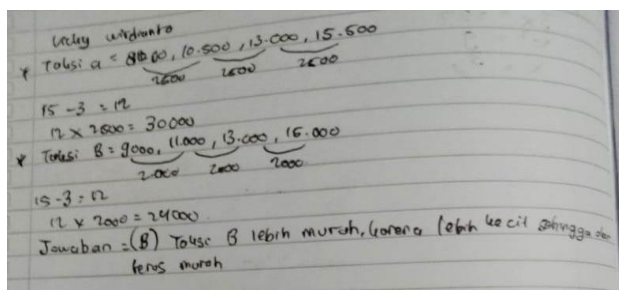 Vicky wirdianto
* Taksi a = 8000, 10.500, 13.000, 15.500
2500 2500 2500
15 - 3 = 12
12 x 2500 = 30000
* Taksi B = 9000, 11.000, 13.000, 15.000
2.000 2000 2000
15 - 3 = 12
12 x 2000 = 24000
Jawaban = (B) Taksi B lebih murah, karena lebih kecil sehingga
murah